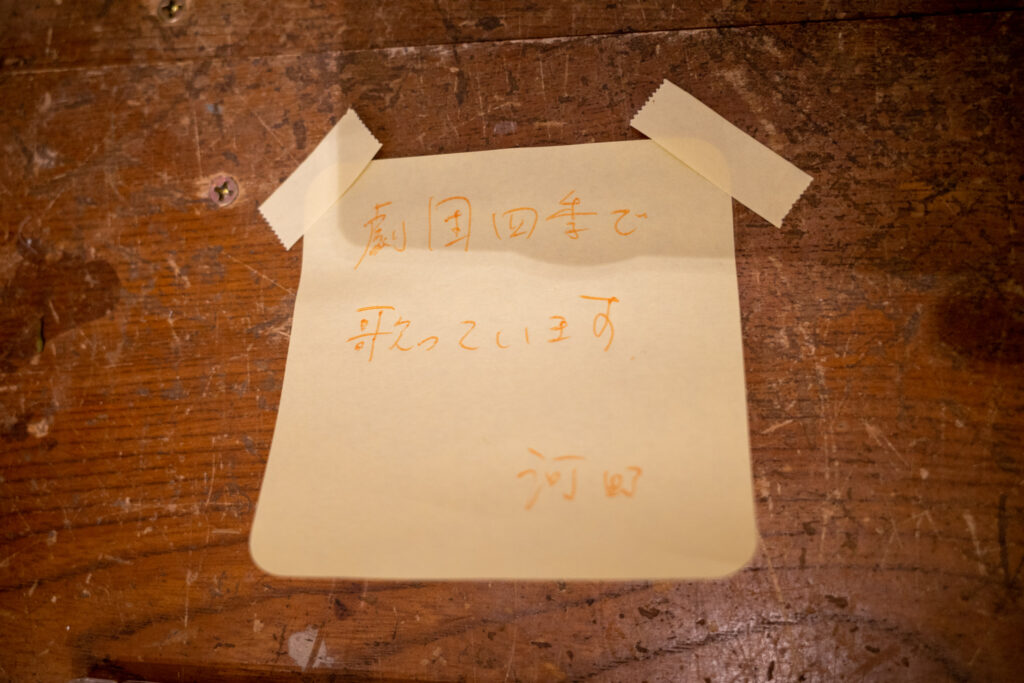 劇団四季で
歌っています
河田